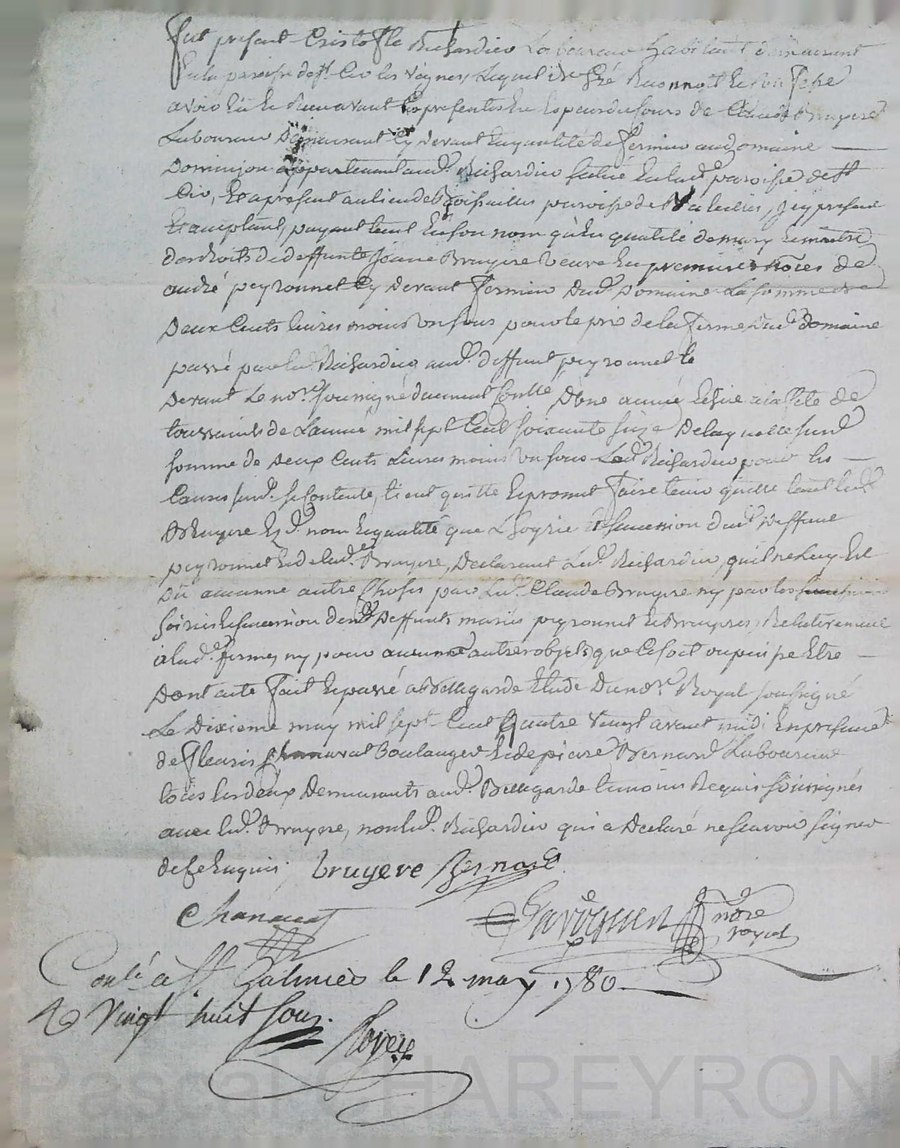 Fut present Cristofle Richardier Laboureur habitant demeurant
en la paroisse de St Cir les vignes Lequel de gré Reconnoit
avoir eu et cy devant Les presentes de Claude Bruyere
Laboureur Demeurant Cy devant en qualité de fermier au domaine
Dominjon appartenant aud. Richardier situé en lad. paroisse de St
Cir, Et a present au lieu de paroisse de Valeilles, Icy present
Et aceptant, payant tant en son nom qu'en qualité de mary et maitre
des droits de deffunte Jeanne Bruyere veuve en premieres nôces de
andré peyronnet Cy devant fermier Dud. Domaine La somme de
Deux Cents livres moins un sous pour le prix de la ferme dud. domaine
passé par led. Richardier aud. deffunt peyronnet le
Devant Le nore. soussigné duement Contlé D'une année echue a la fête de
toussaints de L'année mil sept Cent soixante seize De laquelle susd.
somme de Deux Cents Livres moins un sous Led. Richardier pour les
Causes susd. se Contente, tient quitte et promet faire tenir quitte tant led.
Bruyere Esd. nom et qualité que L'hoyrie et succession dud. Deffunt
peyronnet et de lad. Bruyere, Declarant Led. Richardier, qu'il ne Luy Est
Dû aucunne autre Choses par Led. Claude Bruyere ny par les
hoiries et succession desd. Deffunts mariés peyronnet et Bruyere, Relativement
à lad. ferme, ny pour aucunne autres objets que Ce soit ou puisse Etre
Dont acte fait et passé a Bellegarde Etude Du nore. Royal soussigné
Le Dixieme may mil sept Cent quatre vingt avant midi En presence
de fleuris Chanavat Boulanger et de pierre Bernard Laboureur
tous les deux Demeurants aud. Bellegarde temoins Requis soussignés
avec led. Bruyere, non led. Richardier qui a Declaré ne scavoir signer
de ce Enquis bruyere Bernard
Chanavat
nore royal
Contlé à St Galmier le 12 may 1780
R vingt huit sous.
Pascal CHAREYRON